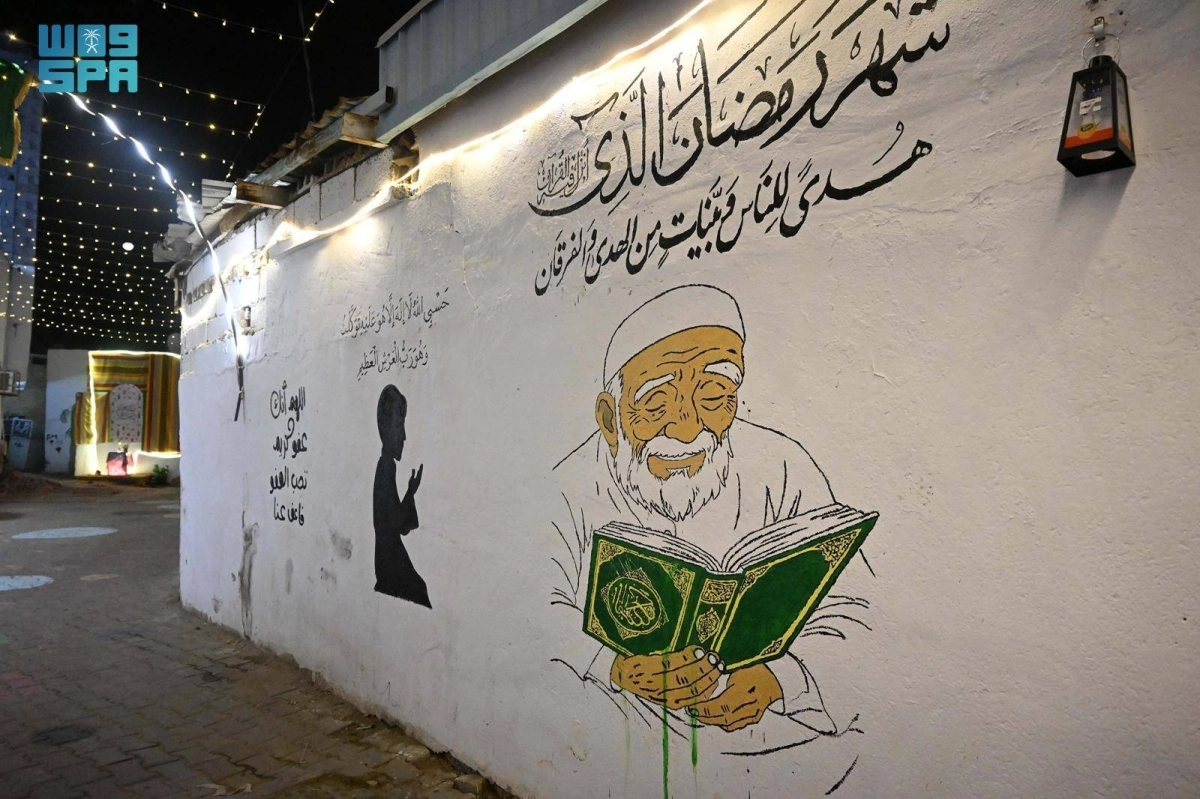 واس
SPA
شهر رمضان الذي
أنزل فيه القرآن
هدىً للناس وبيّنات من الهدى والفرقان
حَسْبِيَ اللهُ لَا إِلَهَ إِلَّا هُوَ عَلَيْهِ تَوَكَّلْتُ
وَهُوَ رَبُّ الْعَرْشِ الْعَظِيمِ
اللهم أنك
عفو كريم
تحب العفو
فاعف عنا